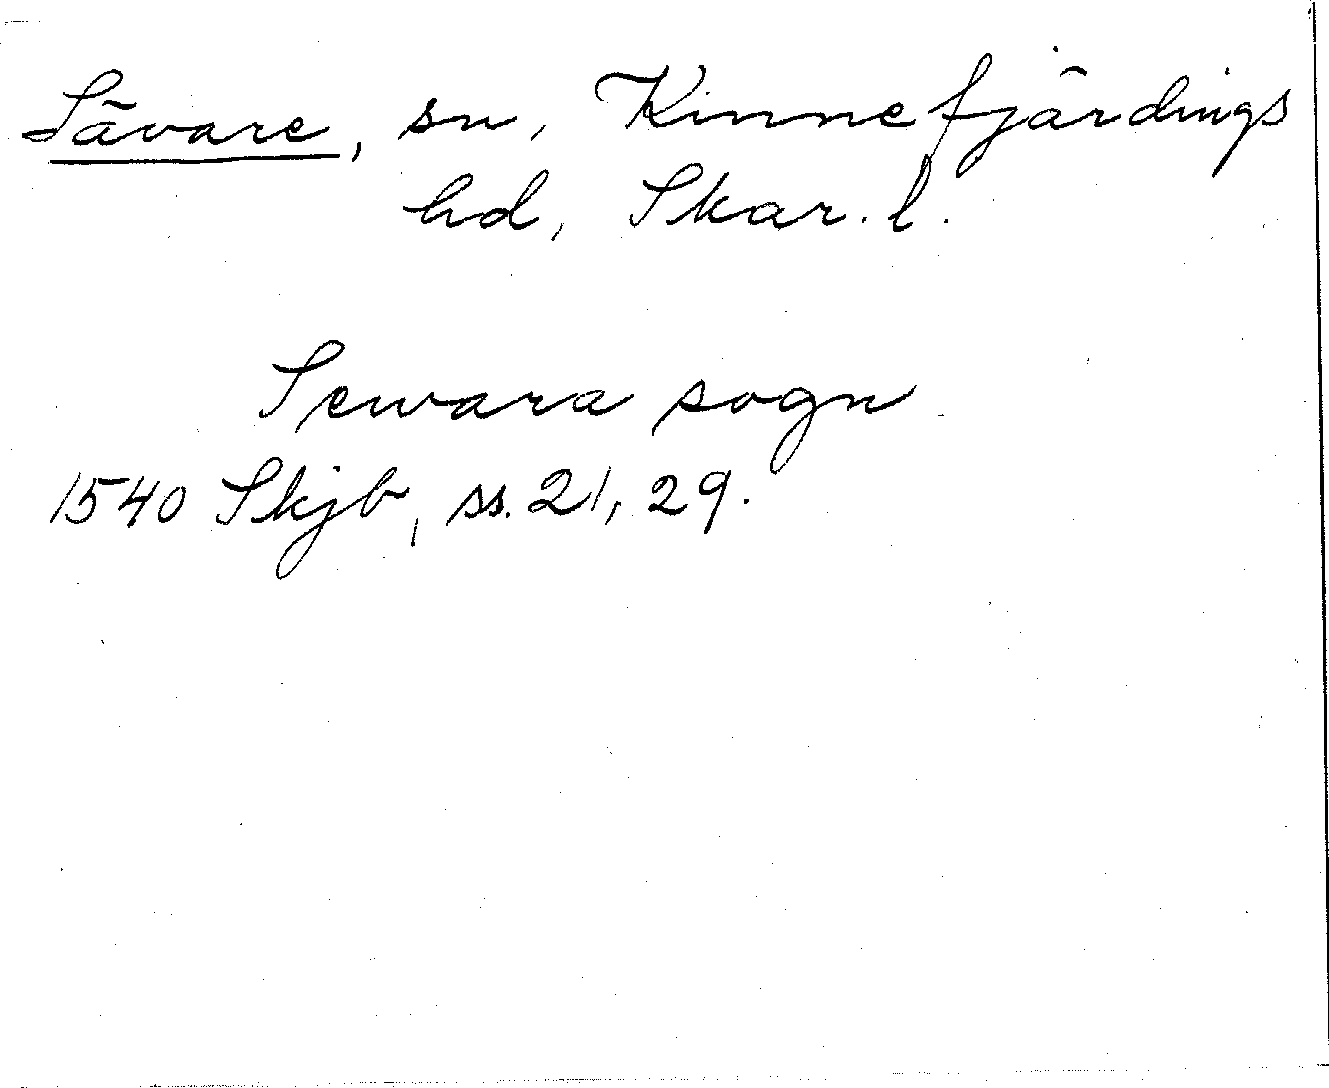 Sävare, sn, Kinnefjärdings
hd, Skar. l.
Sewara sogn
1540 Skjb, ss. 21, 29.